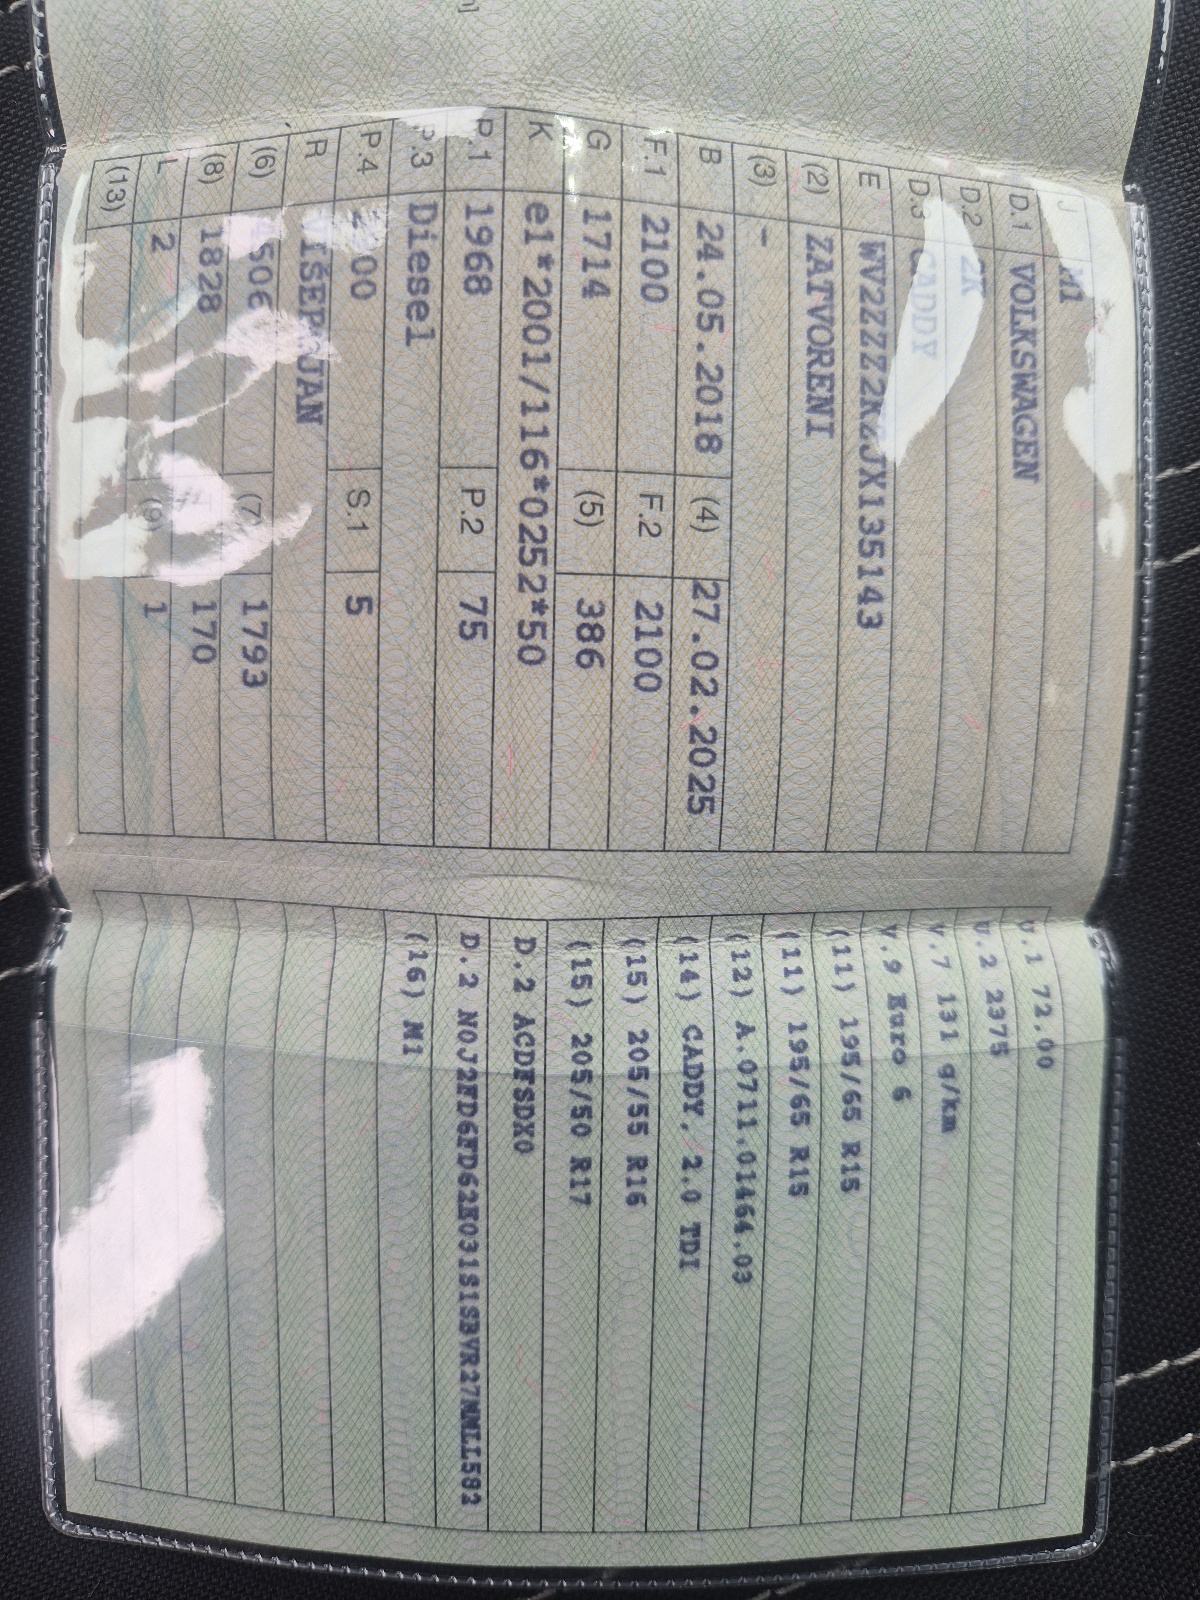 J M1
D.1 VOLKSWAGEN
D.2 2K
D.3 CADDY
E
(2) ZATVORENI
(3) -
B 24.05.2018 (4) 27.02.2025
F.1 2100 F.2 2100
G 1714 (5) 386
K e1*2001/116*0252*50
P.1 1968 P.2 75
P.3 Diesel
P.4 S.1 5
R
(6) (7) 1793
(8) 1828 170
L 2 (9) 1
(13)
U.1 72.00
U.2 2375
V.7 131 g/km
V.9 Euro 6
(11) 195/65 R15
(11) 195/65 R15
(12) A.0711.01464.03
(14) CADDY, 2.0 TDI
(15) 205/55 R16
(15) 205/50 R17
D.2 ACDFSDX0
D.2
(16) M1